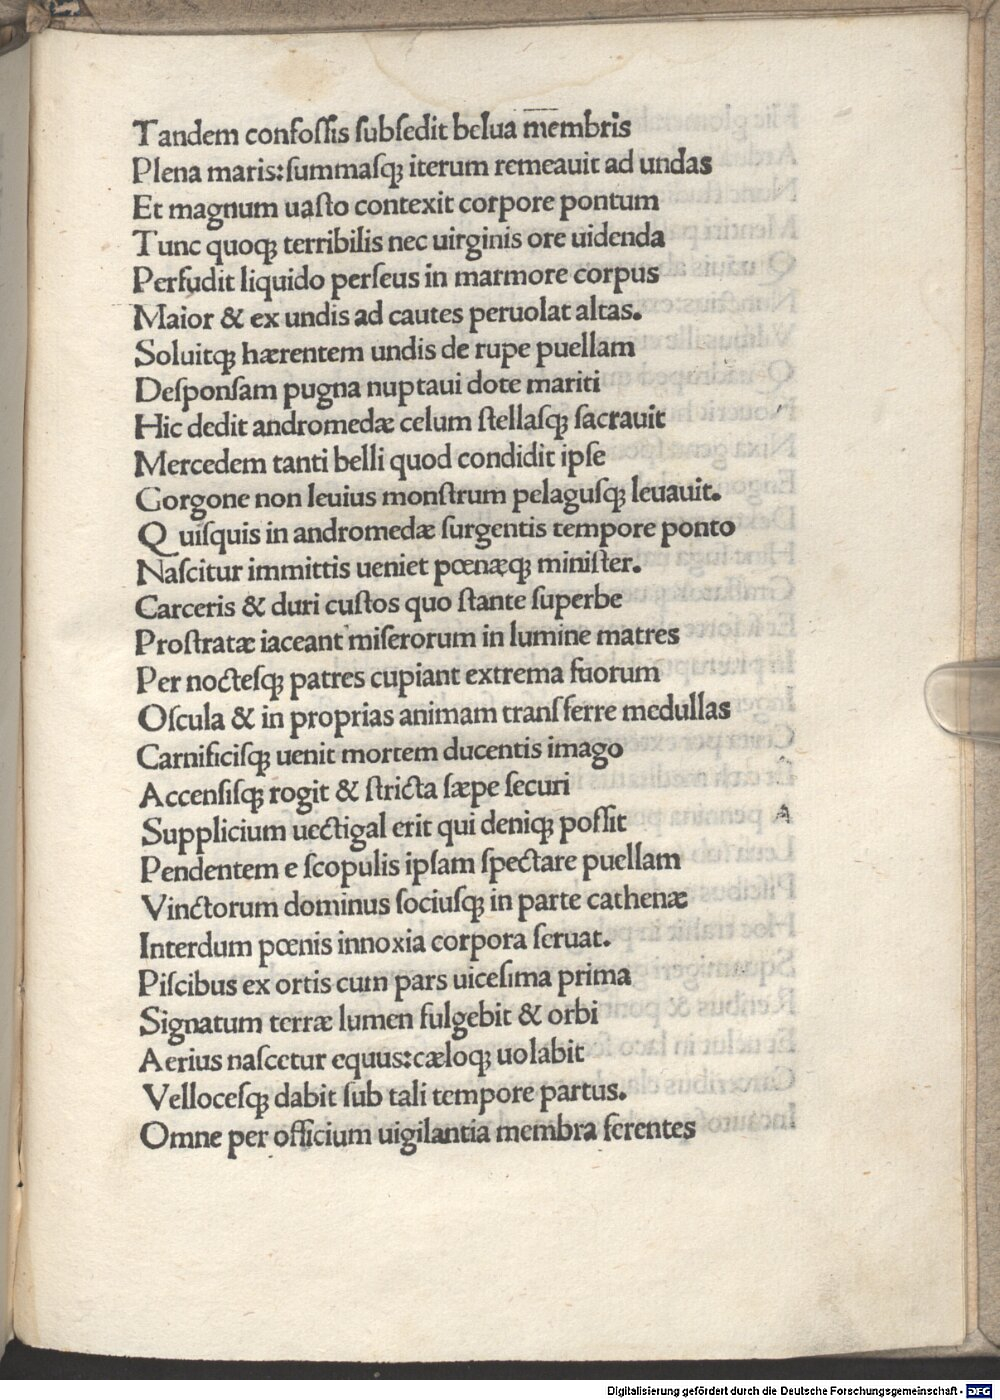 Tandem confoſſis ſubſedit belua membris
Plena maris:ſummaſqꝫ iterum remeauit ad undas
Et magnum uaſto contexit corpore pontum
Tunc quoqꝫ terribilis nec uirginis ore uidenda
Perfudit liquido perſeus in marmore corpus
Maior & ex undis ad cautes peruolat altas.
Soluitqꝫ hærentem undis de rupe puellam
Deſponſam pugna nuptaui dote mariti
Hic dedit andromedæ celum ſtellaſqꝫ ſacrauit
Mercedem tanti belli quod condidit ipſe
Gorgone non leuius monſtrum pelaguſqꝫ leuauit.
Q uiſquis in andromedæ ſurgentis tempore ponto
Naſcitur immittis ueniet pœnæqꝫ miniſter.
Carceris & duri cuſtos quo ſtante ſuperbe
Proſtratæ iaceant miſerorum in lumine matres
Per nocteſqꝫ patres cupiant extrema ſuorum
Oſcula & in proprias animam tranſferre medullas
Carnificiſqꝫ uenit mortem ducentis imago
Accenſiſqꝫ rogit & ſtricta ſæpe ſecuri
Supplicium uectigal erit qui deniqꝫ poſſit
Pendentem e ſcopulis ipſam ſpectare puellam
Vinctorum dominus ſociuſqꝫ in parte cathenæ
Interdum pœnis innoxia corpora ſeruat.
Piſcibus ex ortis cum pars uiceſima prima
Signatum terræ lumen fulgebit & orbi
Aerius naſcetur equus:cæloqꝫ uolabit
Velloceſqꝫ dabit ſub tali tempore partus.
Omne per officium uigilantia membra ferentes
Digitalisierung gefördert durch die Deutsche Forschungsgemeinschaft - DFG